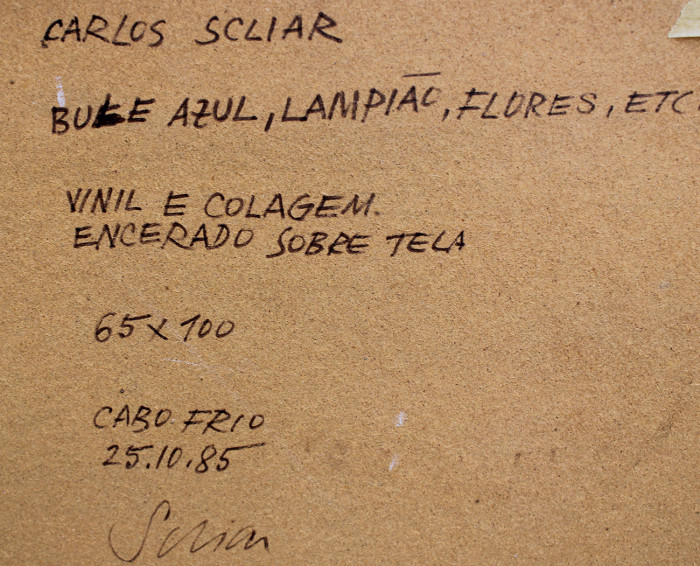 CARLOS SCLIAR
BULE AZUL, LAMPIÃO, FLORES, ETC
VINIL E COLAGEM.
ENCERADO SOBRE TELA
65 x 100
CABO FRIO
25.10.85
Scliar